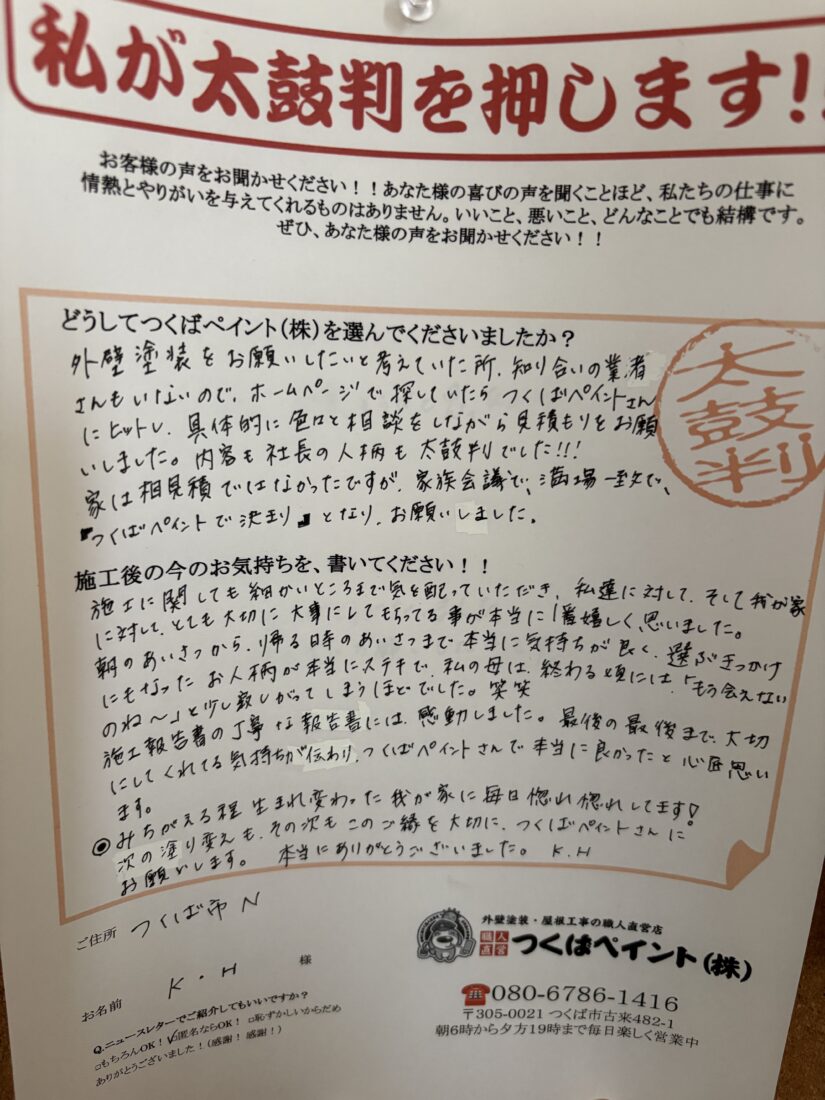 私が太鼓判を押します!!
お客様の声をお聞かせください！！あなた様の喜びの声を聞くことほど、私たちの仕事に
情熱とやりがいを与えてくれるものはありません。いいこと、悪いこと、どんなことでも結構です。
ぜひ、あなた様の声をお聞かせください！！
どうしてつくばペイント(株)を選んでくださいましたか？
外壁塗装をお願いしたいと考えていた所、知り合いの業者
さんもいないので、ホームページで探していたらつくばペイントさん
にヒットし、具体的に色々と相談をしながら見積もりをお願
いしました。内容も社長の人柄も太鼓判でした!!!
家は相見積ではなかったですが、家族会議で、満場一致で、
『つくばペイントで決まり』となり、お願いしました。
太鼓判
施工後の今のお気持ちを、書いてください！！
施工に関しても細かいところまで気を配っていただき、私達に対して、そして我が家
に対して、とても大切に大事にしてもらってる事が本当に1番嬉しく思いました。
朝のあいさつから、帰る時のあいさつまで本当に気持ちが良く、選ぶきっかけ
にもなったお人柄が本当にステキで、私の母は、終わる頃には、「もう会えない
のね〜」と少し寂しがってしまうほどでした。笑笑
施工報告書の丁寧な報告書には、感動しました。最後の最後まで、大切
にしてくれてる気持ちが伝わり、つくばペイントさんで本当に良かったと心底思い
ます。
◎みちがえる程生まれ変わった我が家に毎日惚れ惚れしてます!
次の塗り変えも、その次もこのご縁を大切に、つくばペイントさんに
お願いします。 本当にありがとうございました。 K.H
ご住所 つくば市N
お名前 K.H 様
Q.ニュースレターでご紹介してもいいですか？
□もちろんOK！ ☑匿名ならOK！ □恥ずかしいからだめ
ありがとうございました！(感謝！感謝！)
外壁塗装・屋根工事の職人直営店
職人直営 つくばペイント(株)
☎080-6786-1416
〒305-0021 つくば市古来482-1
朝6時から夕方19時まで毎日楽しく営業中